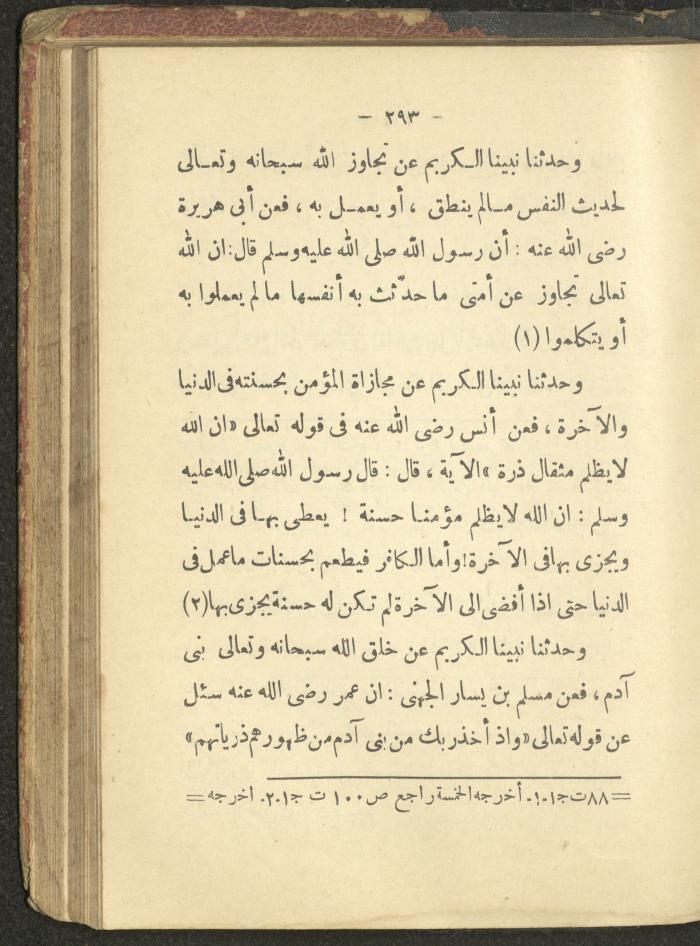 - ٢٩٣ -
وحدثنا نبينا الكريم عن تجاوز الله سبحانه وتعالى
لحديث النفس مالم ينطق ، أو يعمل به ، فعن أبى هريرة
رضى الله عنه : أن رسول الله صلى الله عليه وسلم قال: ان الله
تعالى تجاوز عن أمتى ما حدّثت به أنفسها ما لم يعملوا به
أو يتكلموا (١)
وحدثنا نبينا الكريم عن مجازاة المؤمن بحسنته فى الدنيا
والآخرة ، فعن أنس رضى الله عنه فى قوله تعالى «ان الله
لايظلم مثقال ذرة » الآية ، قال : قال رسول الله صلى الله عليه
وسلم : ان الله لايظلم مؤمنا حسنة ! يعطى بها فى الدنيا
ويجزى بها فى الآخرة! وأما الكافر فيطعم بحسنات ماعمل فى
الدنيا حتى اذا أفضى الى الآخرة لم تكن له حسنة يجزى بها (٢)
وحدثنا نبينا الكريم عن خلق الله سبحانه وتعالى بنى
آدم ، فعن مسلم بن يسار الجهنى : ان عمر رضى الله عنه سئل
عن قوله تعالى «واذ أخذ ربك من بنى آدم من ظهورهم ذرياتهم»
= ٨٨ ت ج١ -١- أخرجه الخمسة راجع ص ١٠٠ ت ج١ -٢- اخرجه =